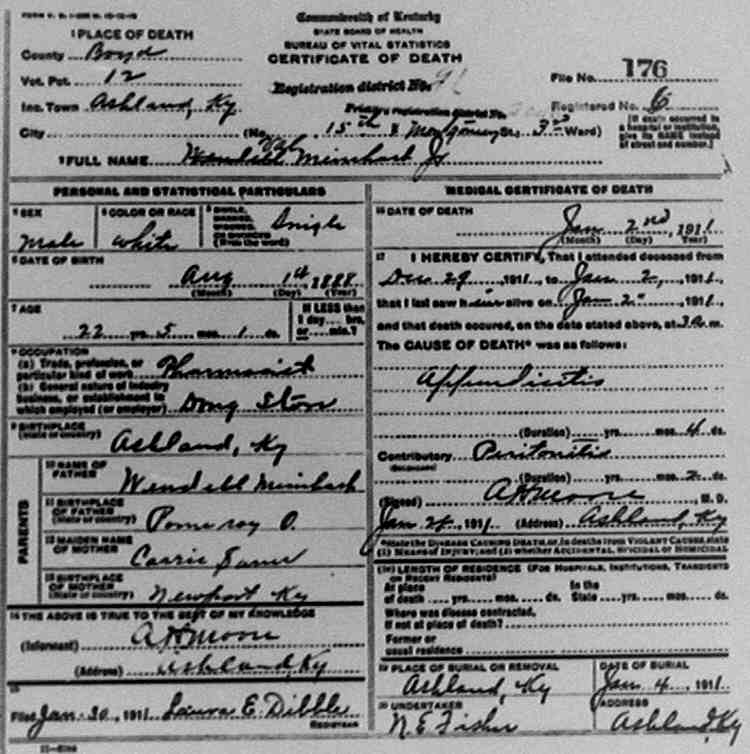 Commonwealth of Kentucky
STATE BOARD OF HEALTH
BUREAU OF VITAL STATISTICS
CERTIFICATE OF DEATH
1 PLACE OF DEATH
County Boyd
Vot. Pct. 12
Inc. Town Ashland, Ky
City
Registration district No. 91
Primary registration district No.
File No. 176
Registered No. 6
(No. 15th & Montgomery St., 3rd Ward)
[If death occurred in a hospital or institution, give its NAME instead of street and number.]
2 FULL NAME Wendell Meinhart Jr
PERSONAL AND STATISTICAL PARTICULARS
3 SEX
Male
4 COLOR OR RACE
White
5 SINGLE, MARRIED, WIDOWED, OR DIVORCED (Write the word)
Single
6 DATE OF BIRTH
Aug 1st, 1888
(Month) (Day) (Year)
7 AGE
22 yrs. 5 mos. 1 ds.
If LESS than 1 day ... hrs. or ... min.?
8 OCCUPATION
(a) Trade, profession, or particular kind of work Pharmacist
(b) General nature of industry business, or establishment in which employed (or employer) Drug Store
9 BIRTHPLACE
(State or country) Ashland, Ky
PARENTS
10 NAME OF FATHER Wendell Meinhart
11 BIRTHPLACE OF FATHER (State or country) Pomeroy O.
12 MAIDEN NAME OF MOTHER Carrie
13 BIRTHPLACE OF MOTHER (State or country) Newport Ky
14 THE ABOVE IS TRUE TO THE BEST OF MY KNOWLEDGE
(Informant) AH Moore
(Address) Ashland, Ky
15
Filed Jan. 30, 1911 Laura E. Dibble
REGISTRAR
MEDICAL CERTIFICATE OF DEATH
16 DATE OF DEATH
Jan 2nd, 1911
(Month) (Day) (Year)
17 I HEREBY CERTIFY, That I attended deceased from
Dec 29, 1911, to Jan 2, 1911,
that I last saw him alive on Jan 2, 1911,
and that death occured, on the date stated above, at 3 a m.
The CAUSE OF DEATH* was as follows:
Appendicitis
(Duration) yrs. mos. 4 ds.
Contributory Peritonitis
(SECONDARY)
(Duration) yrs. mos. 2 ds.
(Signed) AH Moore, M. D.
Jan 28, 1911 (Address) Ashland, Ky
*State the DISEASE CAUSING DEATH, or, in deaths from VIOLENT CAUSES, state (1) MEANS OF INJURY; and (2) whether ACCIDENTAL, SUICIDAL or HOMICIDAL
18 LENGTH OF RESIDENCE (FOR HOSPITALS, INSTITUTIONS, TRANSIENTS OR RECENT RESIDENTS)
At place of death yrs. mos. ds. In the State yrs. mos. ds.
Where was disease contracted,
If not at place of death?
Former or
usual residence
19 PLACE OF BURIAL OR REMOVAL
Ashland, Ky
DATE OF BURIAL
Jan 4, 1911
20 UNDERTAKER
N E Fisher
ADDRESS
Ashland, Ky